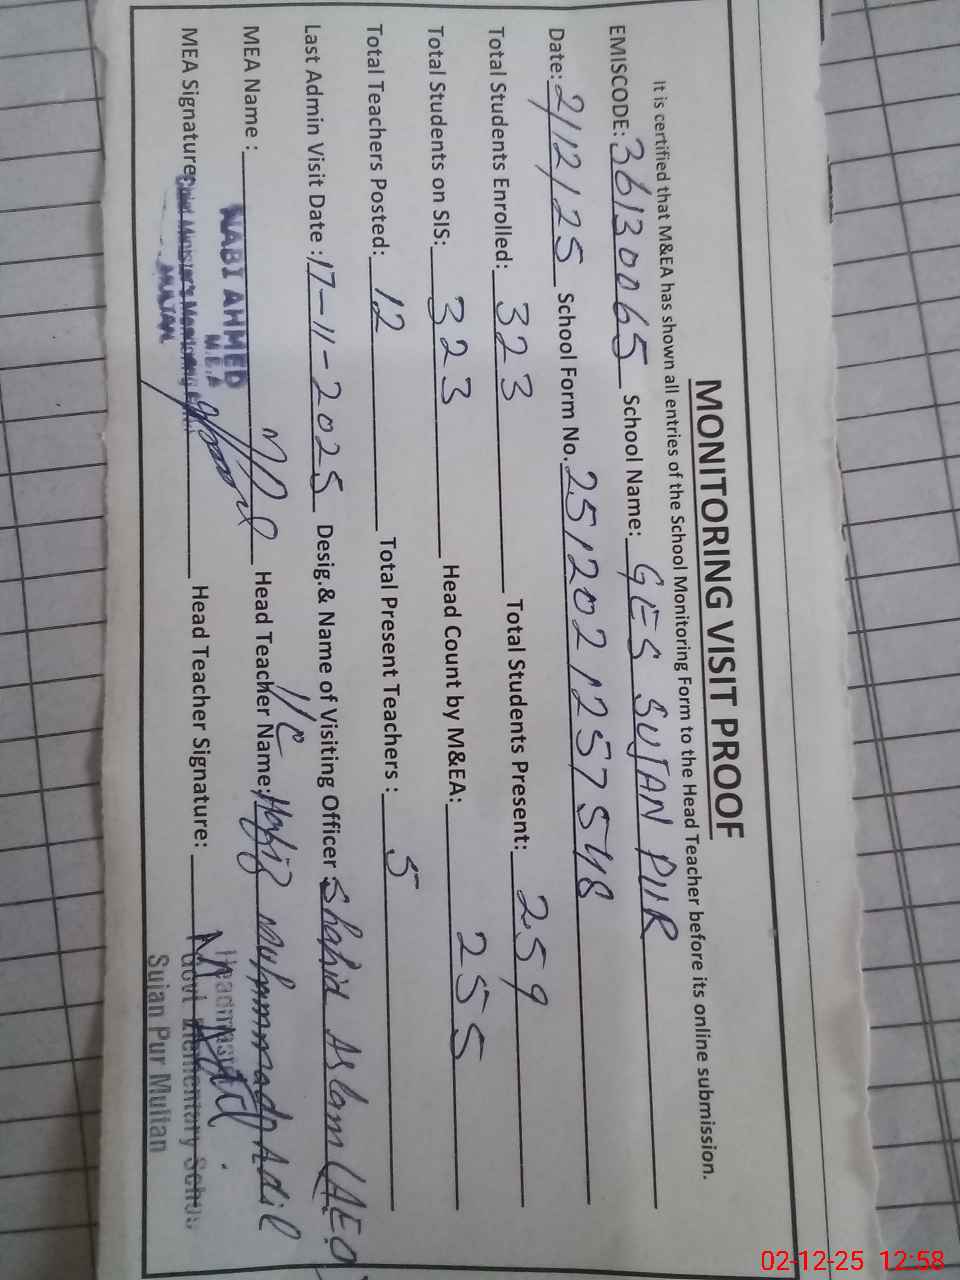 MONITORING VISIT PROOF
It is certified that M&EA has shown all entries of the School Monitoring Form to the Head Teacher before its online submission.
EMISCODE: 36130065 School Name: GES SUJAN PUR
Date: 2/12/25 School Form No. 2512021257548
Total Students Enrolled: 323 Total Students Present: 259
Total Students on SIS: 323 Head Count by M&EA: 255
Total Teachers Posted: 12 Total Present Teachers : 5
Last Admin Visit Date : 17-11-2025 Desig.& Name of Visiting Officer: Shahid Aslam (AEO
I/C
MEA Name : NABI AHMED Head Teacher Name: Hafiz Muhmmad Adil
M.E.A
MEA Signature: Chief Minister's Monitoring Head Teacher Signature: M Adil
MULTAN
Headmaster
Govt Elementary School
Sujan Pur Multan
02-12-25 12:58